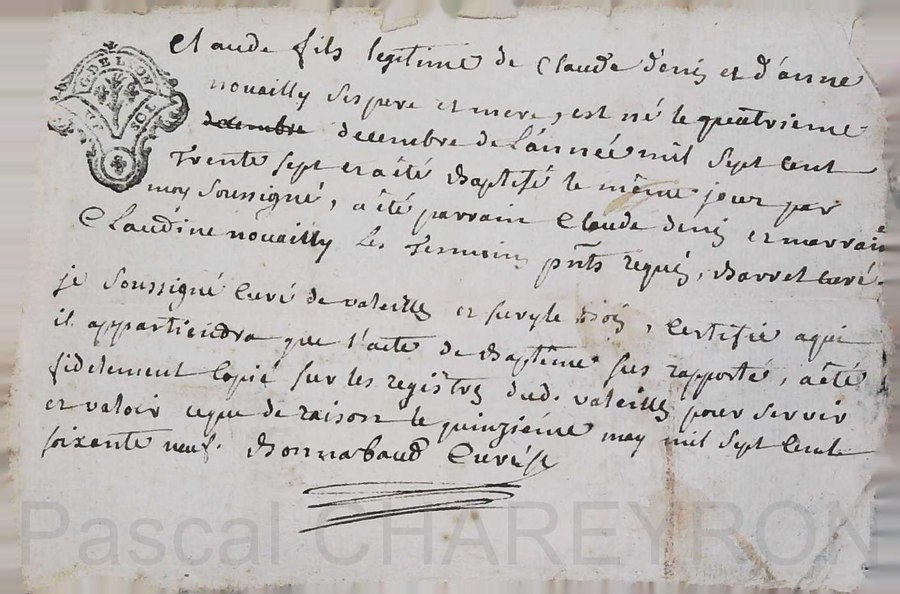 Claude fils legitime de Claude denis et d'anne
nouailly ses pere et mere, est né le quatrieme
decembre decembre de L'année mil sept cent
Trente sept et a été Baptisé le même jour par
moy soussigné, a été parrain Claude denis et marraine
Claudine nouailly Les Temoins pnts requis, Barret Curé.
je soussigné Curé de valeille et Certifie a qui
il appartiendra que l'acte de Baptême sus rapporté, a été
fidelement Copié sur les registres dud. valeille pour servir
et valoir ce que de raison le quinzième may mil sept Cent
soixante neuf. Bonnabaud Curé
Pascal CHAREYRON